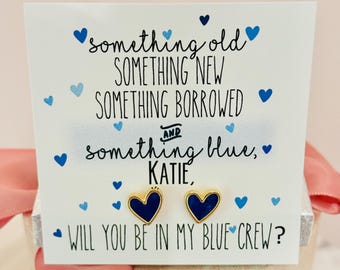 something old
SOMETHING NEW
SOMETHING BORROWED
AND
something blue,
KATIE,
WILL YOU BE IN MY BLUE CREW?